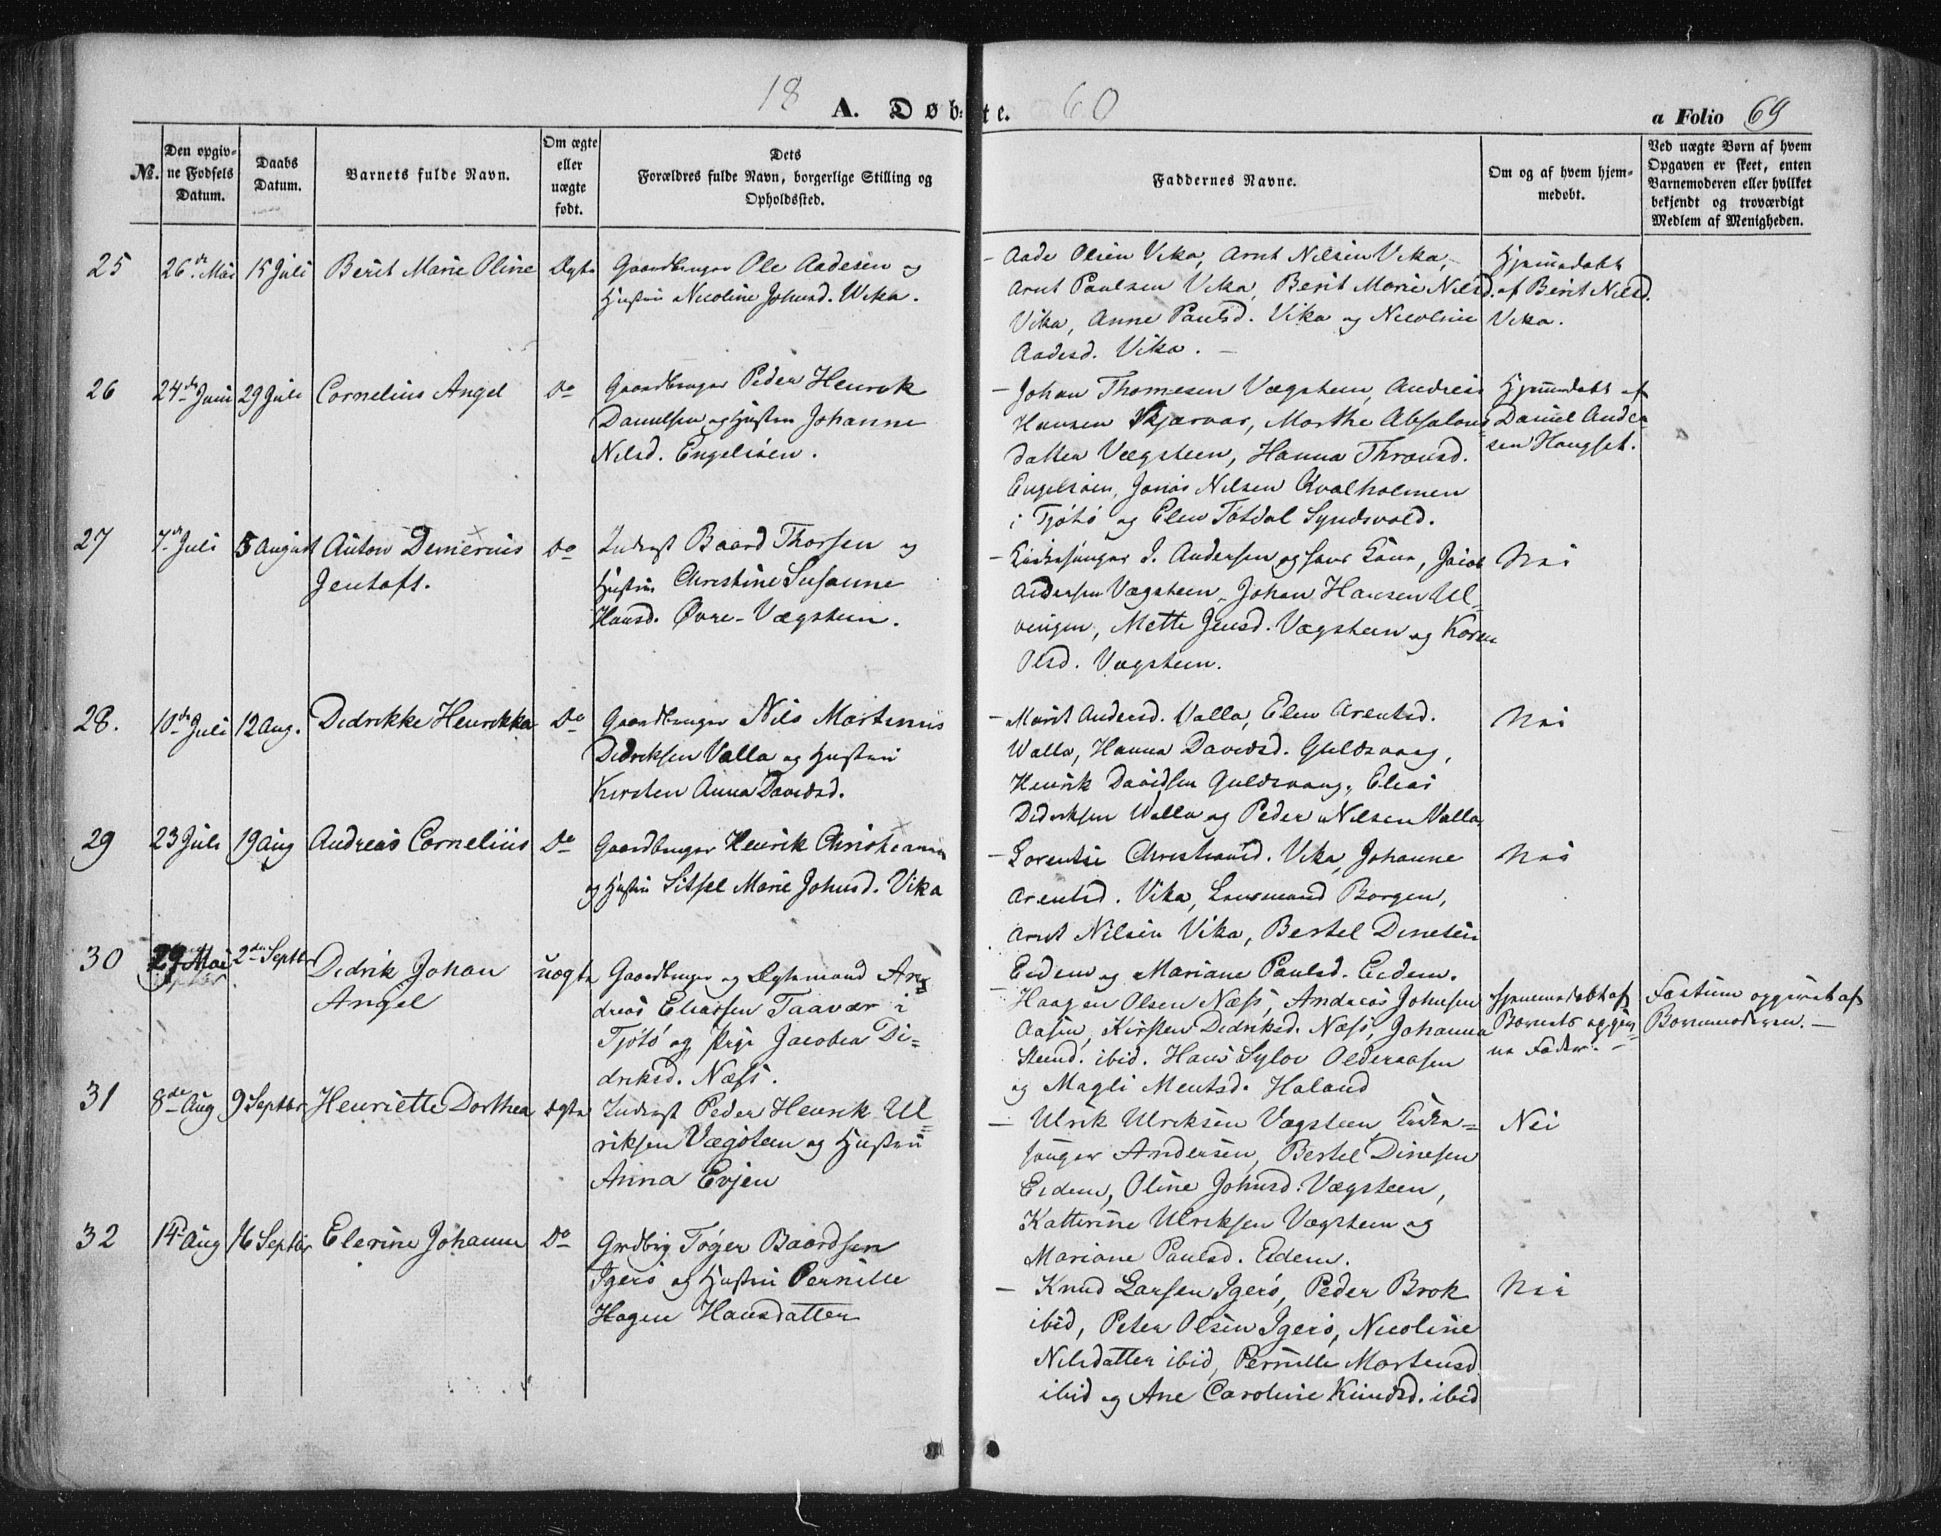 18 A. Døbte. 60
a Folio 69
No.
Den opgiv-
ne Fødsels
Datum.
Daabs
Datum.
Barnets fulde Navn.
Om ægte
eller
uægte
født.
Dets
Forældres fulde Navn, borgerlige Stilling og
Opholdssted.
Faddernes Navne.
Om og af hvem hjem-
medøbt.
Ved uægte Børn af hvem
Opgaven er skeet, enten
Barnemoderen eller hvilket
bekjendt og troværdigt
Medlem af Menigheden.
25 26de Mai 15 Juli Berit Marie Oline Ægte
Gaardbruger Ole Aadesen og
Hustru Nicoline Johnsd. Wika.
- Aade Olsen Vika, Arnt Nilsen Vika,
Arnt Paulsen Vika, Berit Marie Nilsd.
Vika, Anne Paulsd. Vika og Nicoline
Aadesd. Vika. -
Hjemmedøbt
af Berit Nilsd.
Vika.
26 24de Juni 29 Juli Cornelius Angel Do
Gaardbruger Peder Henrik
Danielsen og Hustru Johanne
Nilsd. Engelsøen.
- Johan Thomesen Vægsteen, Andreas
Hansen Skjærvær, Marthe Absalons
datter Vægsteen, Hanna Thronsd.
Engelsøen, Jonas Nilsen Kvalholmen
i Tjøtø og Elen Totdal Syndsvold.
Hjemmedøbt af
Daniel Ander-
sen Haugset.
27 7de Juli 5 August Anton Demerius
Jentoft.
Do
Inderst Baard Thorsen og
Hustru Christine Susanne
Hansd. Øvre-Vægsteen.
- Kirkesanger I. Andersen og hans Kone, Jacob
Andersen Vægsteen, Johan Hansen Ul-
vingen, Mette Jensd. Vægsteen og Karen
Olsd. Vægsteen.
Nei
28. 10de Juli 12 Aug. Didrikke Henrikka Do
Gaardbruger Nils Martinus
Didriksen Valla og Hustru
Kirsten Anna Davidsd.
- Marit Andersd. Valla, Elen Arentsd.
Walla, Hanna Davidsd. Guldsvaag,
Henrik Davidsen Guldsvaag, Elias
Didriksen Walla og Peder Nilsen Valla
Nei
29 23 Juli 19 Aug Andreas Cornelius Do
Gaardbruger Henrik Christiansen
og Hustru Sitsel Marie Johnsd. Vika
- Lorentse Christiansd. Vika, Johanne
Arentsd. Vika, Lensmand Borgen,
Arnt Nilsen Vika, Bertel Dinesen
Eidem og Mariane Paulsd. Eidem.
Nei
30 29 Mai 2den Septbr Didrik Johan
Angel
uægte
Gaardbruger og Ægtemand An-
dreas Eliassen Taavær i
Tjøtø og Pige Jacobea Di-
driksd. Næss.
Haagen Olsen Næss, Andreas Johnsen
Aasen, Kirsten Didriksd. Næss, Johanna
Steend. ibid. Hans Sylov Olderaasen
og Magli Mentsd. Haland
Hjemmedøbt af
Barnets opgiv-
ne Fader. -
Factum opgivet af
Barnemoderen. -
31 8de Aug 9 Septbr Henriette Dorthea Ægte
Inderst Peder Henrik Ul-
riksen Vægsteen og Hustru
Anna Evjen
- Ulrik Ulriksen Vægsteen, Kirke-
sanger Andersen, Bertel Dinesen
Eidem, Oline Johnsd. Vægsteen,
Katterine Ulriksen Vægsteen og
Mariane Paulsd. Eidem.
Nei
32 14de Aug 16 Septbr Elerine Johanne Do
Grdbrg Tøger Baardsen
Igerø og Hustru Pernille
Hagen Hansdatter
- Knud Larsen Igerø, Peder Brok
ibid, Peter Olsen Igerø, Nicoline
Nilsdatter ibid, Pernille Mortensd
ibid og Ane Caroline Knudsd. ibid
Nei